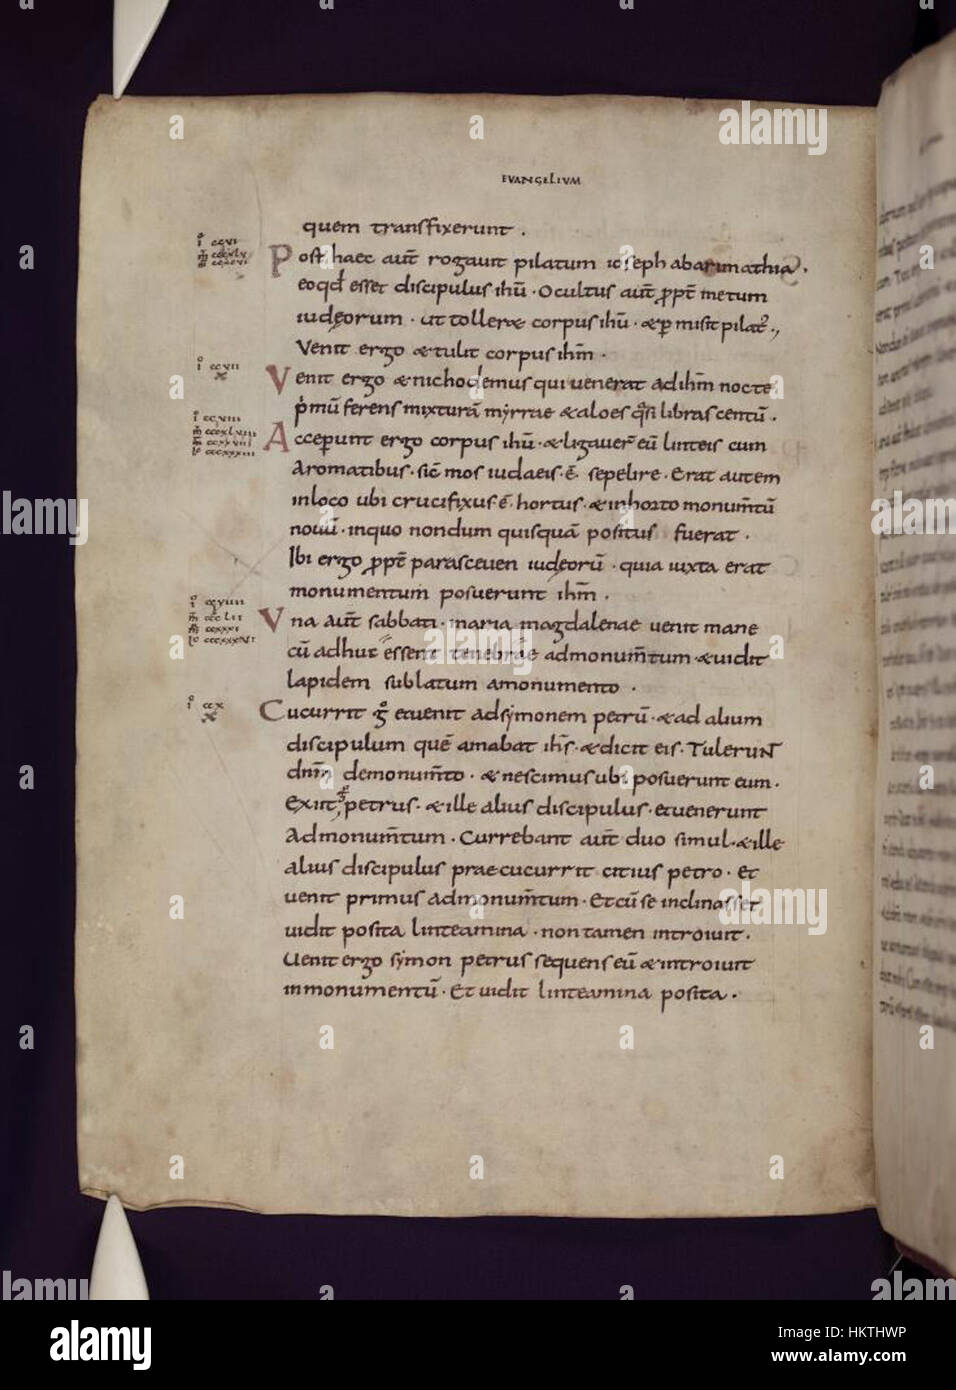 EVANGELIVM
quem transfixerunt .
Post haec aut̄ rogauit pilatum ioseph abarimathia .
eoqđ esset discipulus ihū · Ocultus aut̄ ꝓpt̄ metum
iudęorum · ut tolleret corpus ihū · & ꝑmisit pilat᾽ .,
Venit ergo & tulit corpus ihm̄ .
Venit ergo & nichodemus qui uenerat ad ihm̄ nocte
p̊mū ferens mixturā myrrae & aloes q̊si libras centū .
Acceper̄unt ergo corpus ihū · & ligauer̄ eū linteis cum
aromatibus · sic̄ mos iudaeis · ē sepelire · Erat autem
inloco ubi crucifixus ē · hortus · & inhorto monum̄tū
nouū · inquo nondum quisquā positus fuerat ·
Ibi ergo ꝓpt̄ parasceuen iudęorū · quia iuxta erat
monumentum posuerunt ihm̄ .
Vna aut̄ sabbati · maria magdalenae uenit mane
cū adhuc essent tenebrae admonum̄tum · & uidit
lapidem sublatum amonumento .
Cucurrit g̊ et uenit adsymonem petrū · & ad alium
discipulum quē amabat ihs̄ · & dicit eis · Tulerunt
dnm̄ demonum̄to · & nescimus ubi posuerunt eum .
Exiit g̊ petrus · & ille alius discipulus · et uenerunt
admonum̄tum · Currebant aut̄ duo simul · & ille
alius discipulus praecucurrit citius petro · Et
uenit primus admonum̄tum · Et cū se inclinasset
uidit posita linteamina · non tamen introiuit .
Uenit ergo symon petrus sequens eū & introiuit
inmonumentū · Et uidit linteamina posita .
i ccvi
i ccvii
x
i ccviii
i ccviiii
i ccx
x
alamy
Image ID: HKTHWP
www.alamy.com